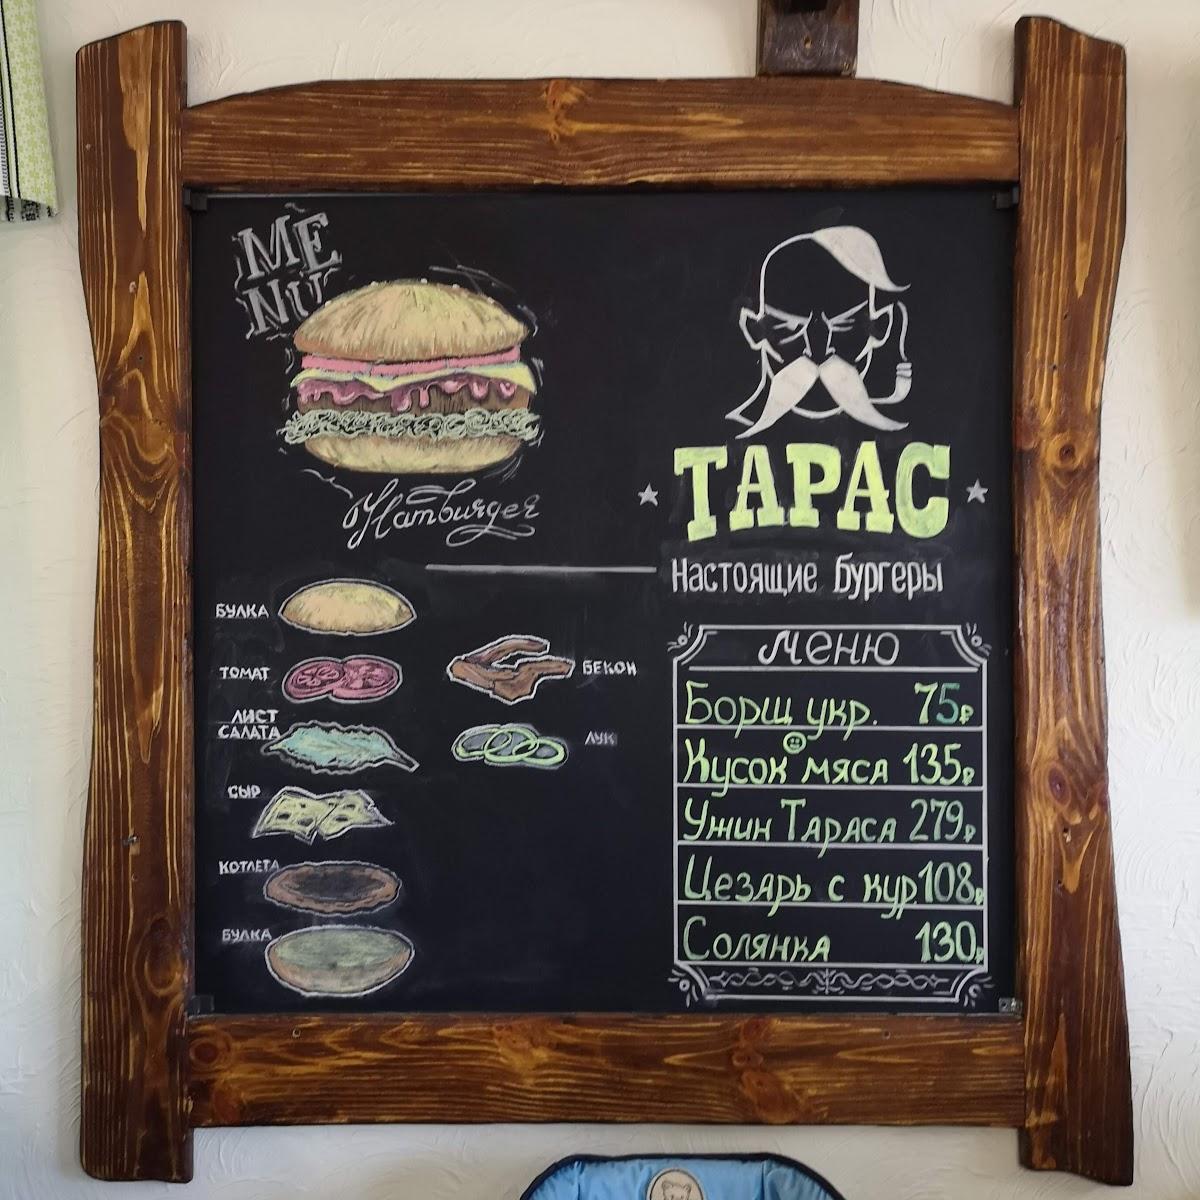 MENU
Hamburger
БУЛКА
ТОМАТ
ЛИСТ
САЛАТА
СЫР
КОТЛЕТА
БУЛКА
БЕКОН
ЛУК
ТАРАС
Настоящие Бургеры
Меню
Борщ укр. 75₽
Кусок мяса 135₽
Ужин Тараса 279₽
Цезарь с кур. 108₽
Солянка 130₽